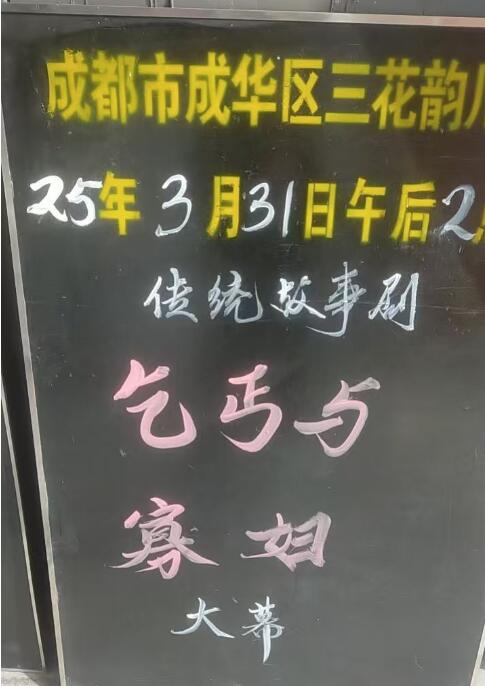 成都市成华区三花韵
25年3月31日午后2
传统故事剧
乞丐与
寡妇
大幕